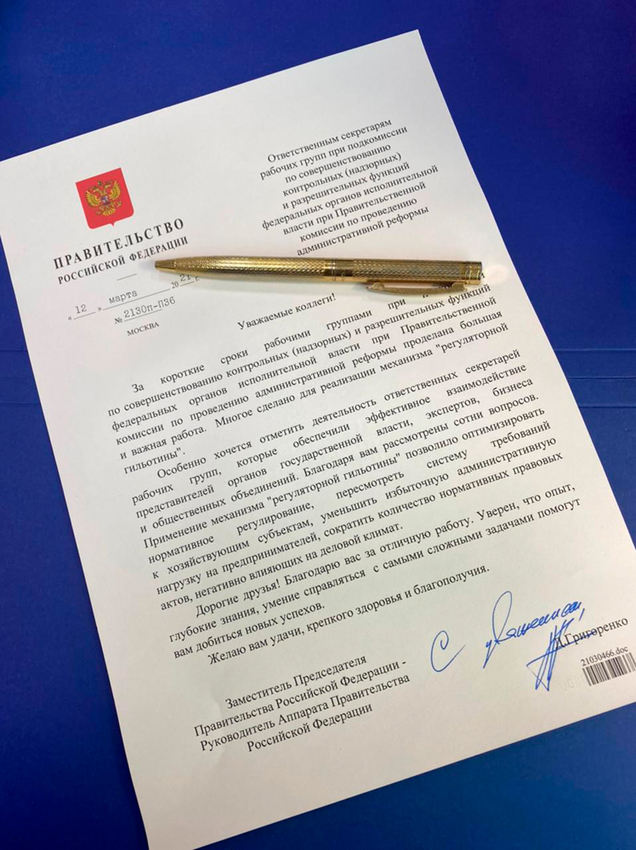 Ответственным секретарям
рабочих групп при подкомиссии
по совершенствованию
контрольных (надзорных)
и разрешительных функций
федеральных органов исполнительной
власти при Правительственной
комиссии по проведению
административной реформы
ПРАВИТЕЛЬСТВО
РОССИЙСКОЙ ФЕДЕРАЦИИ
« 12 » марта 20 21
№ 2130п-П36
МОСКВА
Уважаемые коллеги!
За короткие сроки рабочими группами при
по совершенствованию контрольных (надзорных) и разрешительных функций
федеральных органов исполнительной власти при Правительственной
комиссии по проведению административной реформы проделана большая
и важная работа. Многое сделано для реализации механизма "регуляторной
гильотины".
Особенно хочется отметить деятельность ответственных секретарей
рабочих групп, которые обеспечили эффективное взаимодействие
представителей органов государственной власти, экспертов, бизнеса
и общественных объединений. Благодаря вам рассмотрены сотни вопросов.
Применение механизма "регуляторной гильотины" позволило оптимизировать
нормативное регулирование, пересмотреть систему требований
к хозяйствующим субъектам, уменьшить избыточную административную
нагрузку на предпринимателей, сократить количество нормативных правовых
актов, негативно влияющих на деловой климат.
Дорогие друзья! Благодарю вас за отличную работу. Уверен, что опыт,
глубокие знания, умение справляться с самыми сложными задачами помогут
вам добиться новых успехов.
Желаю вам удачи, крепкого здоровья и благополучия.
С уважением,
Заместитель Председателя
Правительства Российской Федерации -
Руководитель Аппарата Правительства
Российской Федерации
Григоренко
21030466.doc